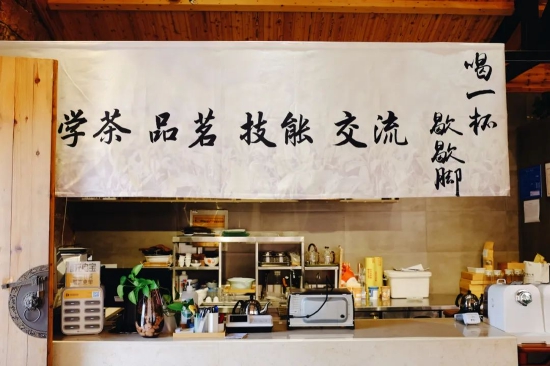 学茶 品茗 技能 交流
喝一杯
歇歇脚